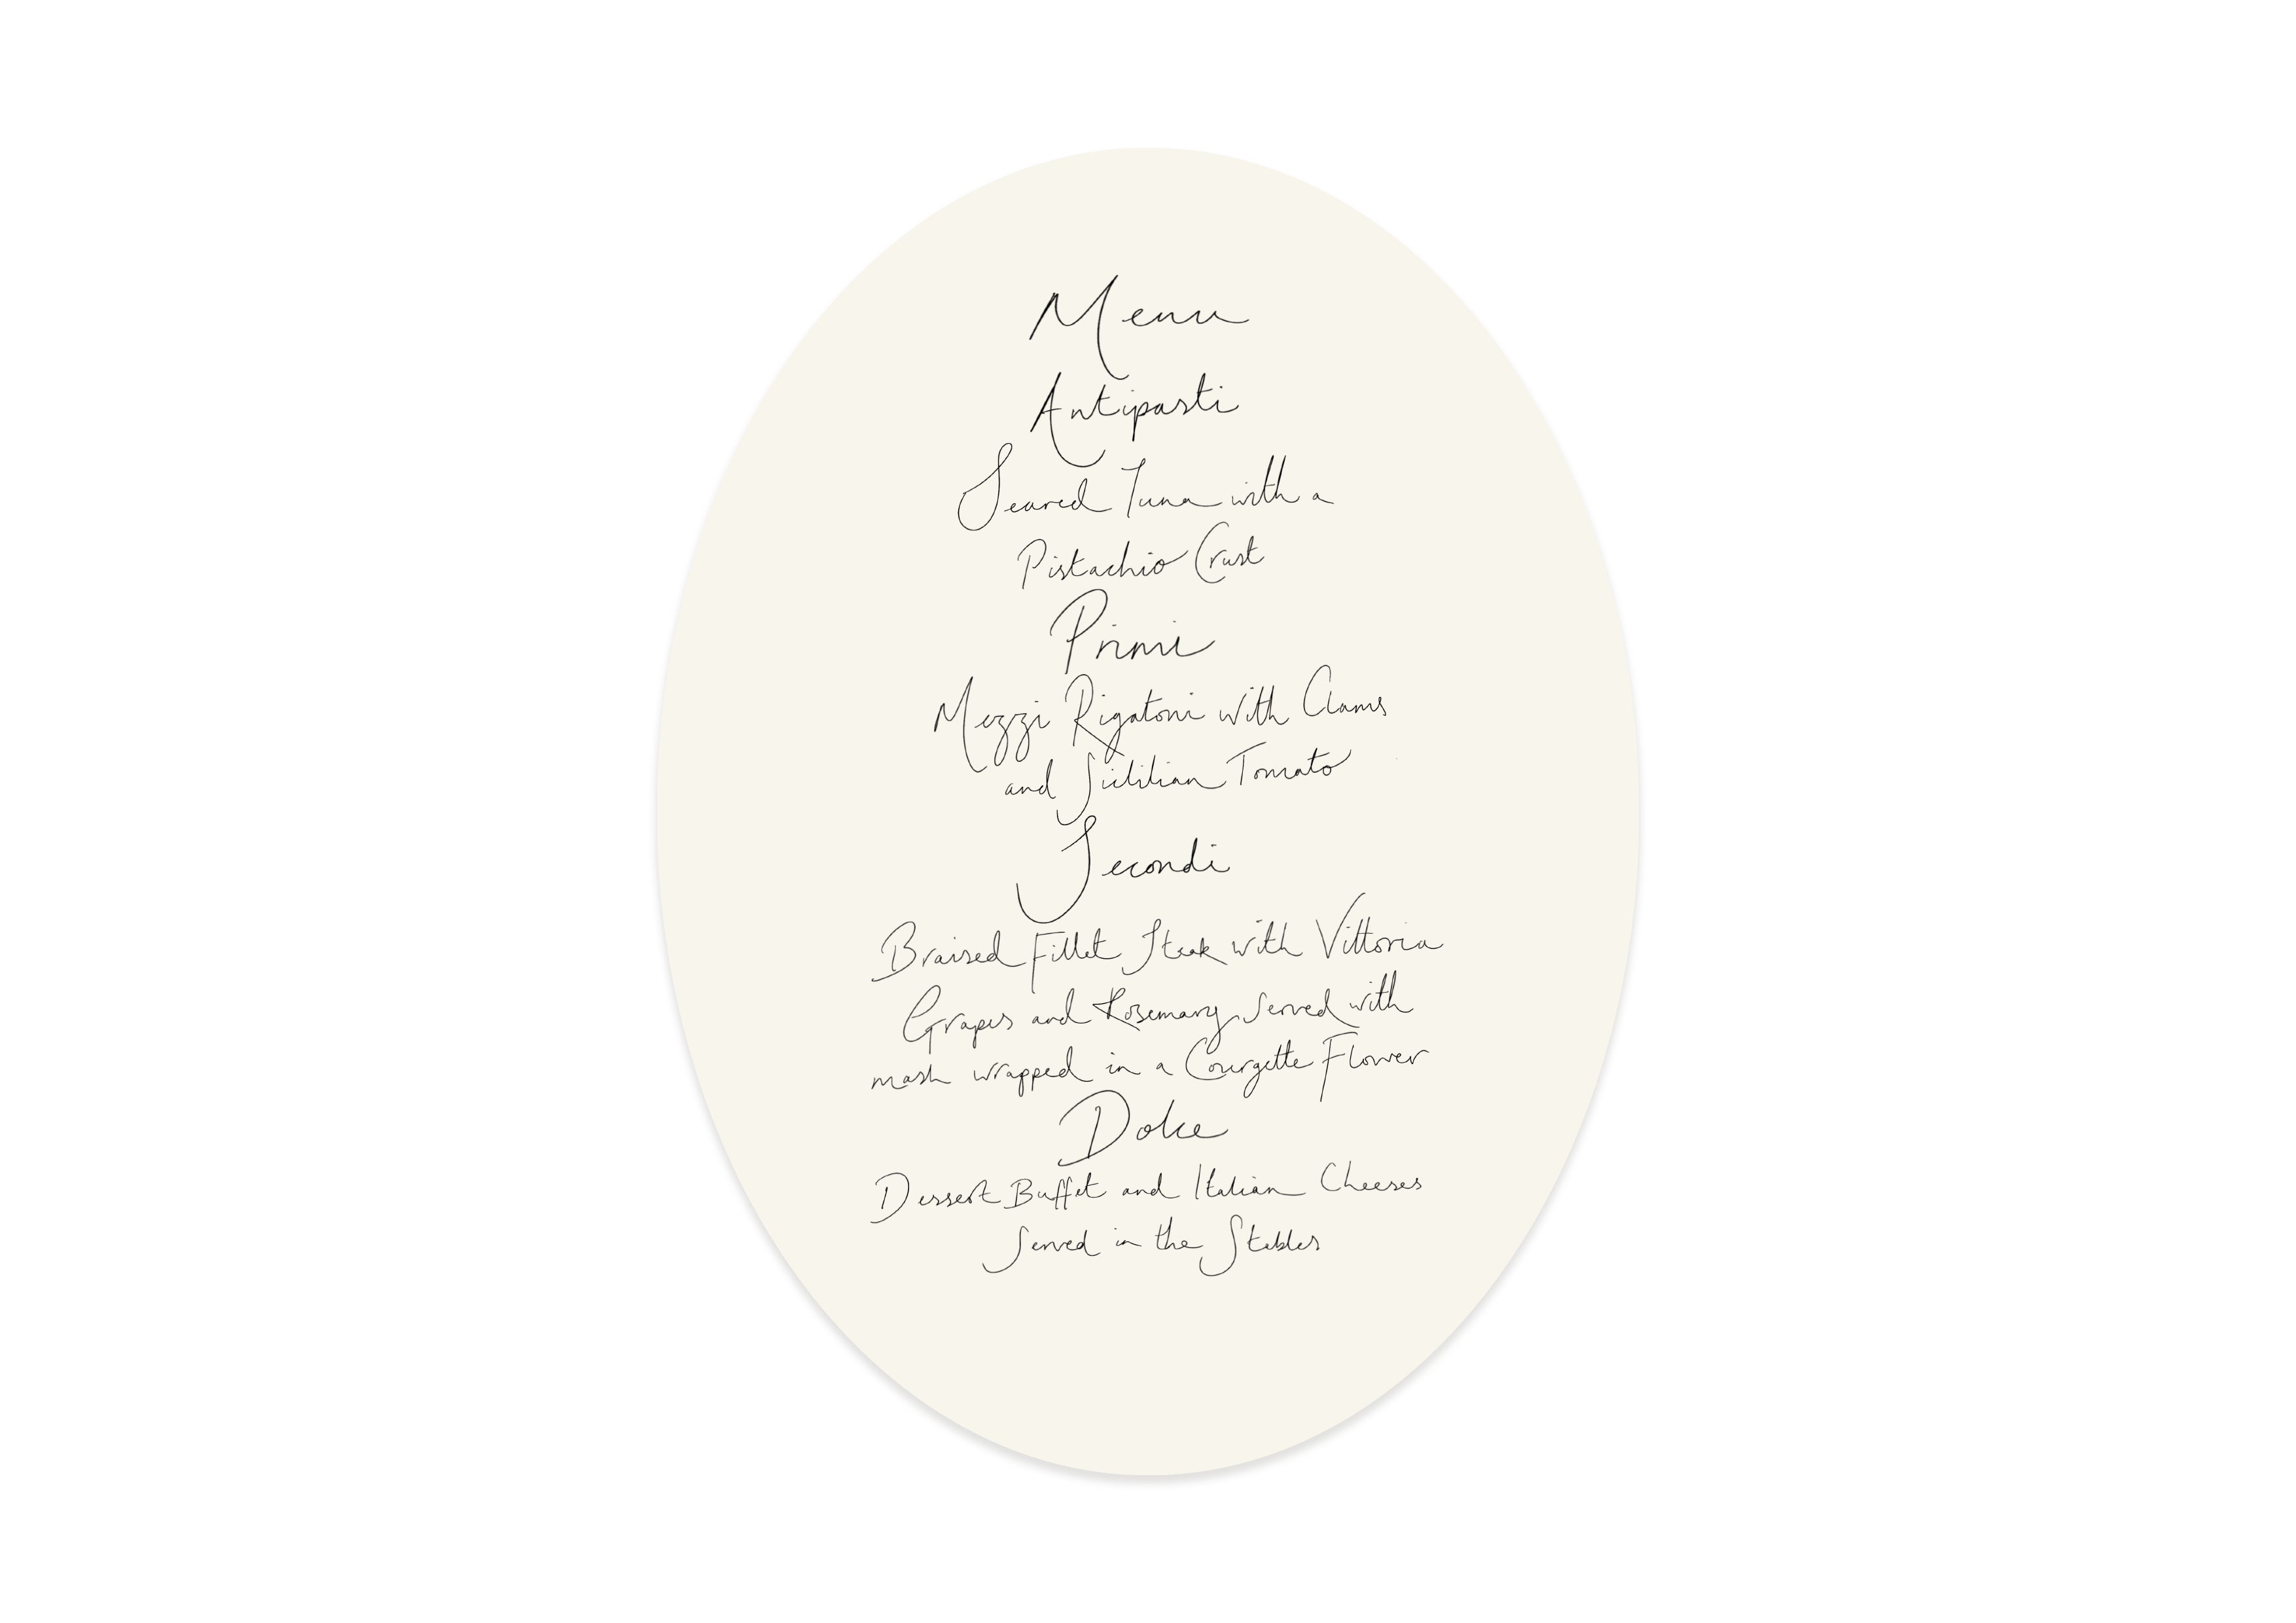 Menu
Antipasti
Seared Tuna with a
Pistachio Crust
Primi
Mezzi Rigatoni with Clams
and Sicilian Tomato
Secondi
Braised Fillet Steak with Vittoria
Grapes and Rosemary served with
mash wrapped in a Courgette Flower
Dolce
Dessert Buffet and Italian Cheeses
Served in the Stables